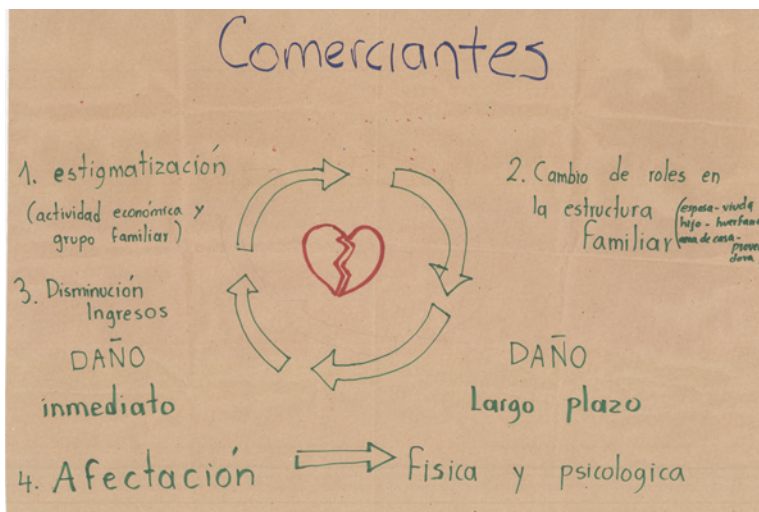 Comerciantes
1. estigmatización
(actividad económica y
grupo familiar)
2. Cambio de roles en
la estructura
Familiar
(esposa - viuda
hijo - huerfano
ama de casa -
provee
dora
3. Disminución
Ingresos
DAÑO
inmediato
DAÑO
Largo plazo
4. Afectación
Fisica y psicologica